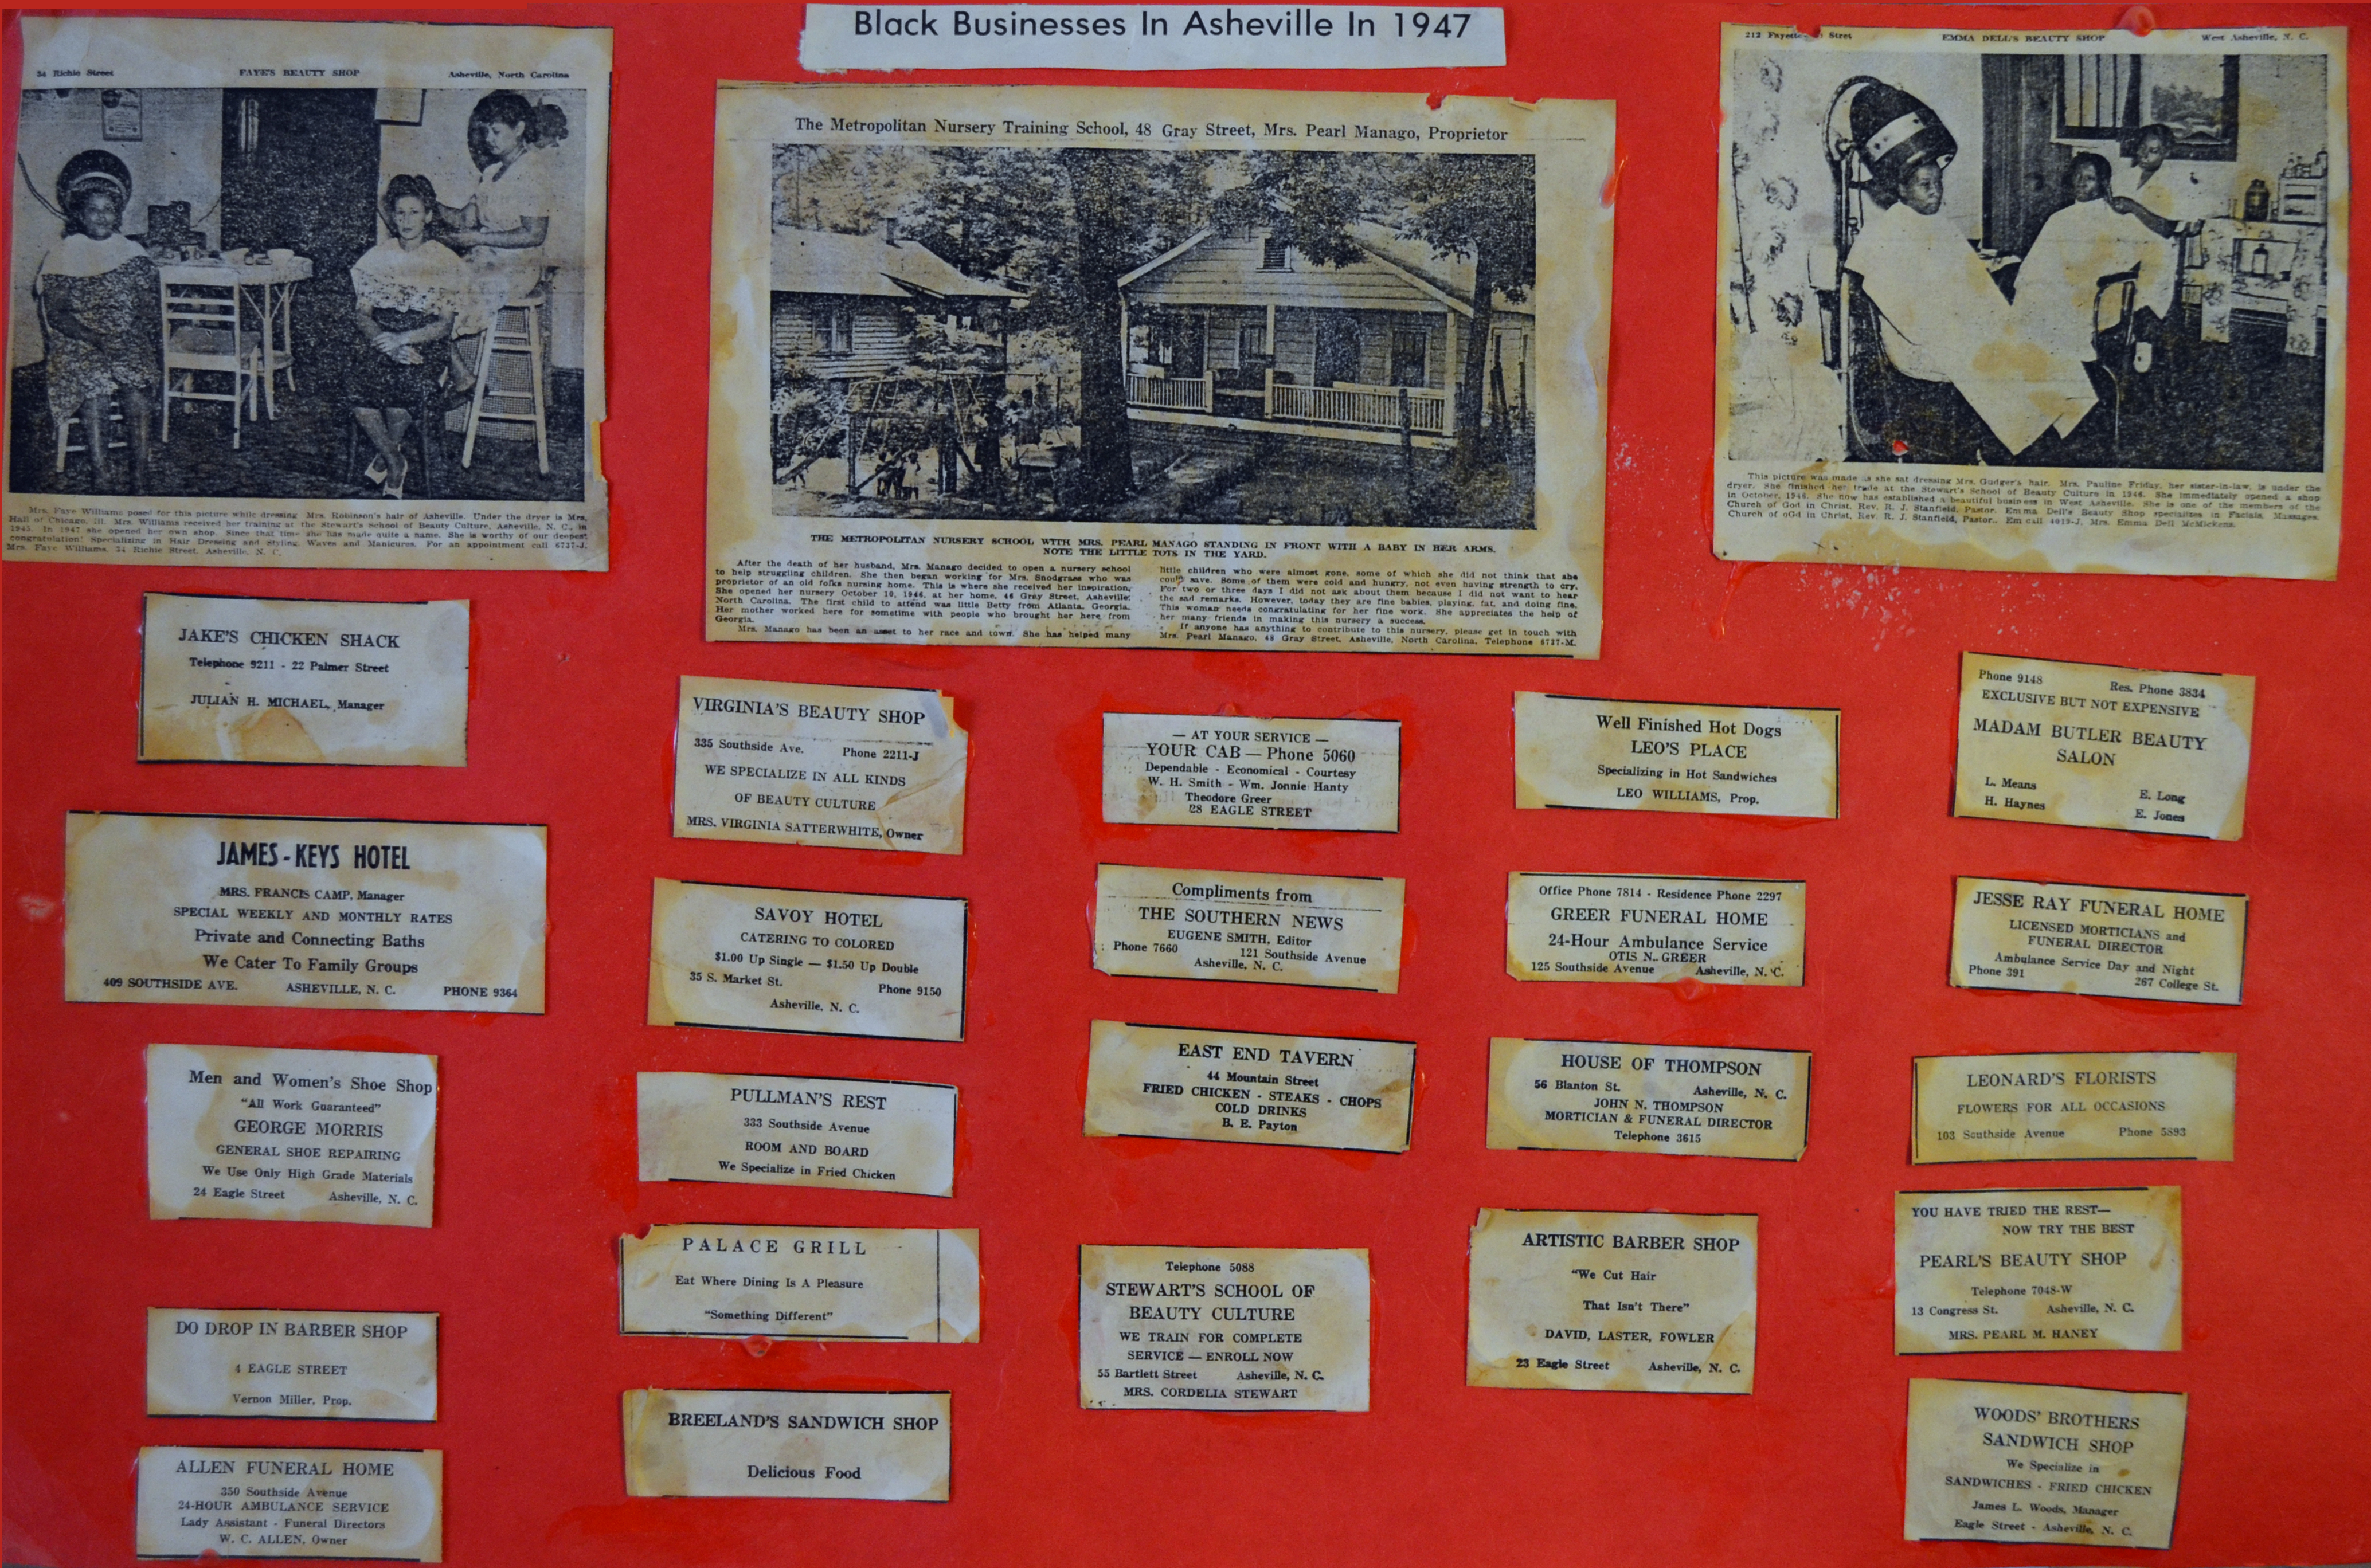 Black Businesses In Asheville In 1947
34 Richie Street FAYE'S BEAUTY SHOP Asheville, North Carolina
Mrs. Faye Williams posed for this picture while dressing Mrs. Robinson's hair of Asheville. Under the dryer is Mrs.
Hall of Chicago, Ill. Mrs. Williams received her training at the Stewart's School of Beauty Culture, Asheville, N. C., in
1945. In 1947 she opened her own shop. Since that time she has made quite a name. She is worthy of our deepest
congratulation! Specializing in Hair Dressing and Styling, Waves and Manicures. For an appointment call 6737-J.
Mrs. Faye Williams, 34 Richie Street, Asheville, N. C.
The Metropolitan Nursery Training School, 48 Gray Street, Mrs. Pearl Manago, Proprietor
THE METROPOLITAN NURSERY SCHOOL WITH MRS. PEARL MANAGO STANDING IN FRONT WITH A BABY IN HER ARMS.
NOTE THE LITTLE TOTS IN THE YARD.
After the death of her husband, Mrs. Manago decided to open a nursery school
to help struggling children. She then began working for Mrs. Snodgrass who was
proprietor of an old folks nursing home. This is where she received her inspiration.
She opened her nursery October 10, 1946, at her home, 48 Gray Street, Asheville,
North Carolina. The first child to attend was little Betty from Atlanta, Georgia.
Her mother worked here for sometime with people who brought her here from
Georgia.
Mrs. Manago has been an asset to her race and town. She has helped many
little children who were almost gone, some of which she did not think that she
could save. Some of them were cold and hungry, not even having strength to cry.
For two or three days I did not ask about them because I did not want to hear
the sad remarks. However, today they are fine babies, playing, fat, and doing fine.
This woman needs congratulating for her fine work. She appreciates the help of
her many friends in making this nursery a success.
If anyone has anything to contribute to this nursery, please get in touch with
Mrs. Pearl Manago, 48 Gray Street, Asheville, North Carolina, Telephone 6737-M.
212 Stret EMMA DELL'S BEAUTY SHOP West Asheville, N. C.
This picture was made as she sat dressing Mrs. Gudger's hair. Mrs. Pauline Friday, her sister-in-law, is under the
dryer. She finished her trade at the Stewart's School of Beauty Culture in 1946. She immediately opened a shop
in October, 1946. She now has established a beautiful business in West Asheville. She is one of the members of the
Church of God in Christ, Rev. R. J. Stanfield, Pastor. Emma Dell's Beauty Shop specializes in Facials, Massages.
Church of oGd in Christ, Rev. R. J. Stanfield, Pastor.. Em call 4019-J, Mrs. Emma Dell McMickens.
JAKE'S CHICKEN SHACK
Telephone 9211 - 22 Palmer Street
JULIAN H. MICHAEL, Manager
JAMES-KEYS HOTEL
MRS. FRANCIS CAMP, Manager
SPECIAL WEEKLY AND MONTHLY RATES
Private and Connecting Baths
We Cater To Family Groups
409 SOUTHSIDE AVE. ASHEVILLE, N. C. PHONE 9364
Men and Women's Shoe Shop
"All Work Guaranteed"
GEORGE MORRIS
GENERAL SHOE REPAIRING
We Use Only High Grade Materials
24 Eagle Street Asheville, N. C.
DO DROP IN BARBER SHOP
4 EAGLE STREET
Vernon Miller, Prop.
ALLEN FUNERAL HOME
350 Southside Avenue
24-HOUR AMBULANCE SERVICE
Lady Assistant - Funeral Directors
W. C. ALLEN, Owner
VIRGINIA'S BEAUTY SHOP
335 Southside Ave. Phone 2211-J
WE SPECIALIZE IN ALL KINDS
OF BEAUTY CULTURE
MRS. VIRGINIA SATTERWHITE, Owner
SAVOY HOTEL
CATERING TO COLORED
$1.00 Up Single — $1.50 Up Double
35 S. Market St. Phone 9150
Asheville, N. C.
PULLMAN'S REST
333 Southside Avenue
ROOM AND BOARD
We Specialize in Fried Chicken
PALACE GRILL
Eat Where Dining Is A Pleasure
"Something Different"
BREELAND'S SANDWICH SHOP
Delicious Food
— AT YOUR SERVICE —
YOUR CAB — Phone 5060
Dependable - Economical - Courtesy
W. H. Smith - Wm. Jonnie Hanty
Theodore Greer
28 EAGLE STREET
Compliments from
THE SOUTHERN NEWS
EUGENE SMITH, Editor
Phone 7660 121 Southside Avenue
Asheville, N. C.
EAST END TAVERN
44 Mountain Street
FRIED CHICKEN - STEAKS - CHOPS
COLD DRINKS
B. E. Payton
Telephone 5088
STEWART'S SCHOOL OF
BEAUTY CULTURE
WE TRAIN FOR COMPLETE
SERVICE — ENROLL NOW
55 Bartlett Street Asheville, N. C.
MRS. CORDELIA STEWART
Well Finished Hot Dogs
LEO'S PLACE
Specializing in Hot Sandwiches
LEO WILLIAMS, Prop.
Office Phone 7814 - Residence Phone 2297
GREER FUNERAL HOME
24-Hour Ambulance Service
OTIS N. GREER
125 Southside Avenue Asheville, N. C.
HOUSE OF THOMPSON
56 Blanton St. Asheville, N. C.
JOHN N. THOMPSON
MORTICIAN & FUNERAL DIRECTOR
Telephone 3615
ARTISTIC BARBER SHOP
"We Cut Hair
That Isn't There"
DAVID, LASTER, FOWLER
23 Eagle Street Asheville, N. C.
Phone 9148 Res. Phone 3834
EXCLUSIVE BUT NOT EXPENSIVE
MADAM BUTLER BEAUTY
SALON
L. Means E. Long
H. Haynes E. Jones
JESSE RAY FUNERAL HOME
LICENSED MORTICIANS and
FUNERAL DIRECTOR
Ambulance Service Day and Night
Phone 391 267 College St.
LEONARD'S FLORISTS
FLOWERS FOR ALL OCCASIONS
103 Southside Avenue Phone 5893
YOU HAVE TRIED THE REST—
NOW TRY THE BEST
PEARL'S BEAUTY SHOP
Telephone 7048-W
13 Congress St. Asheville, N. C.
MRS. PEARL M. HANEY
WOODS' BROTHERS
SANDWICH SHOP
We Specialize in
SANDWICHES - FRIED CHICKEN
James L. Woods, Manager
Eagle Street - Asheville, N. C.